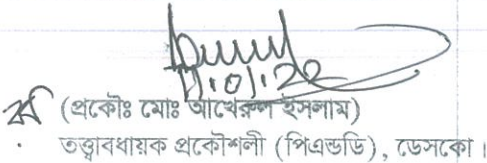 (প্রকৌঃ মোঃ আখেরুল ইসলাম)
তত্ত্বাবধায়ক প্রকৌশলী (পিএন্ডডি), ডেসকো।